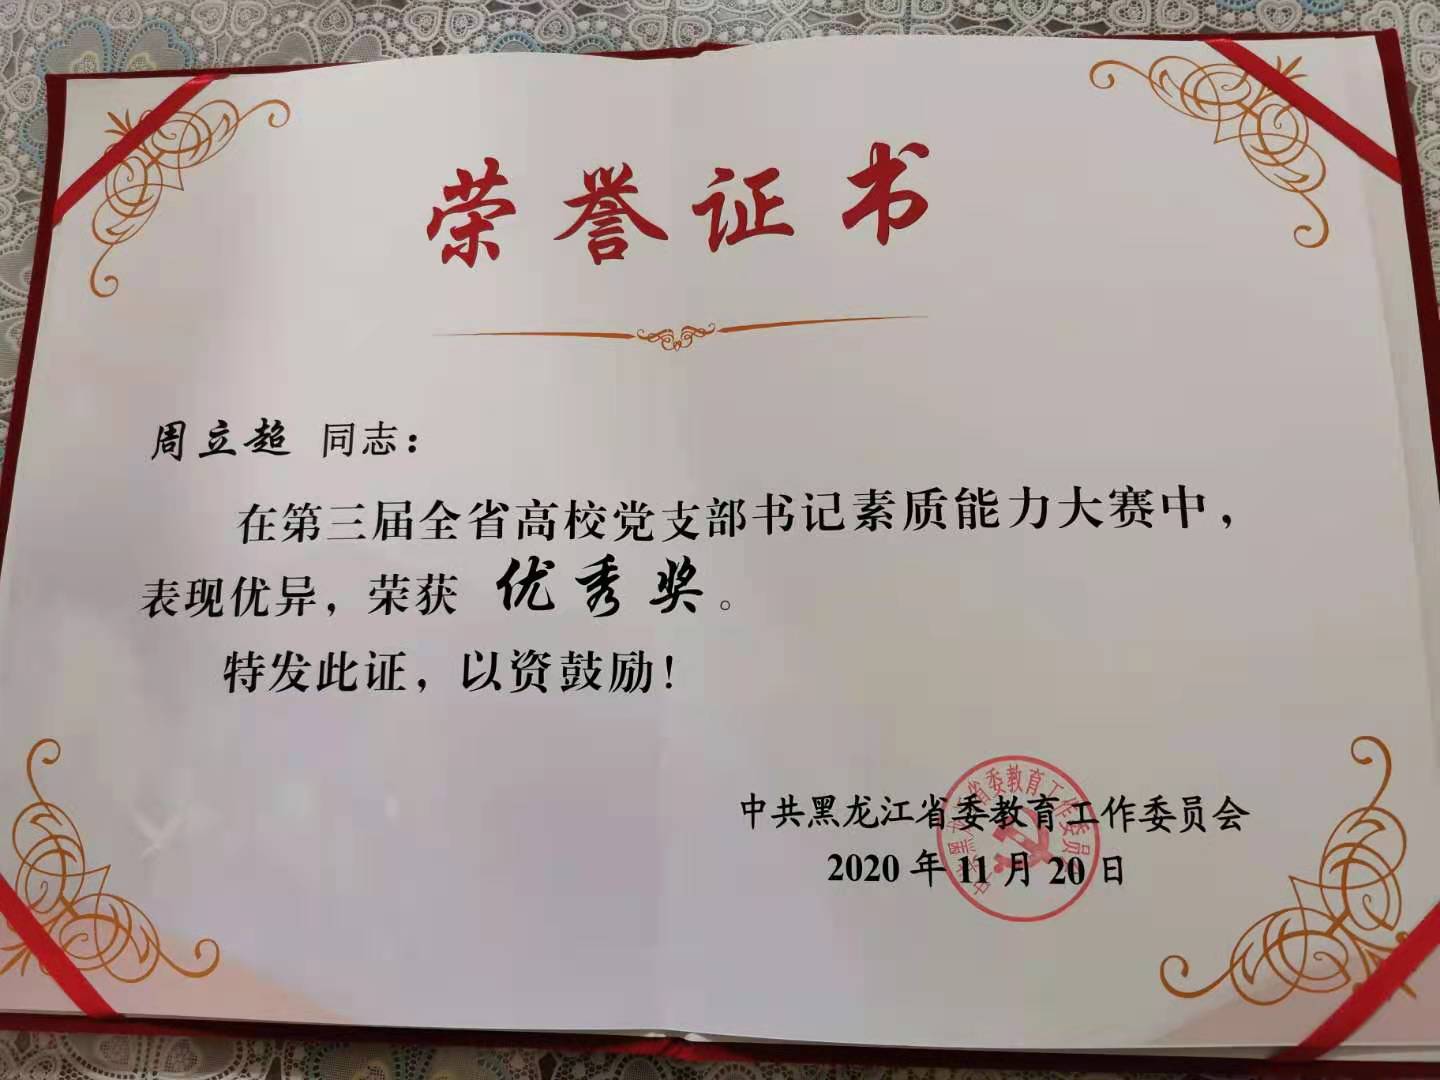 荣誉证书
周立超 同志：
在第三届全省高校党支部书记素质能力大赛中，
表现优异，荣获 优秀奖。
特发此证，以资鼓励！
中共黑龙江省委教育工作委员会
2020年11月20日
中共黑龙江省委教育工作委员会